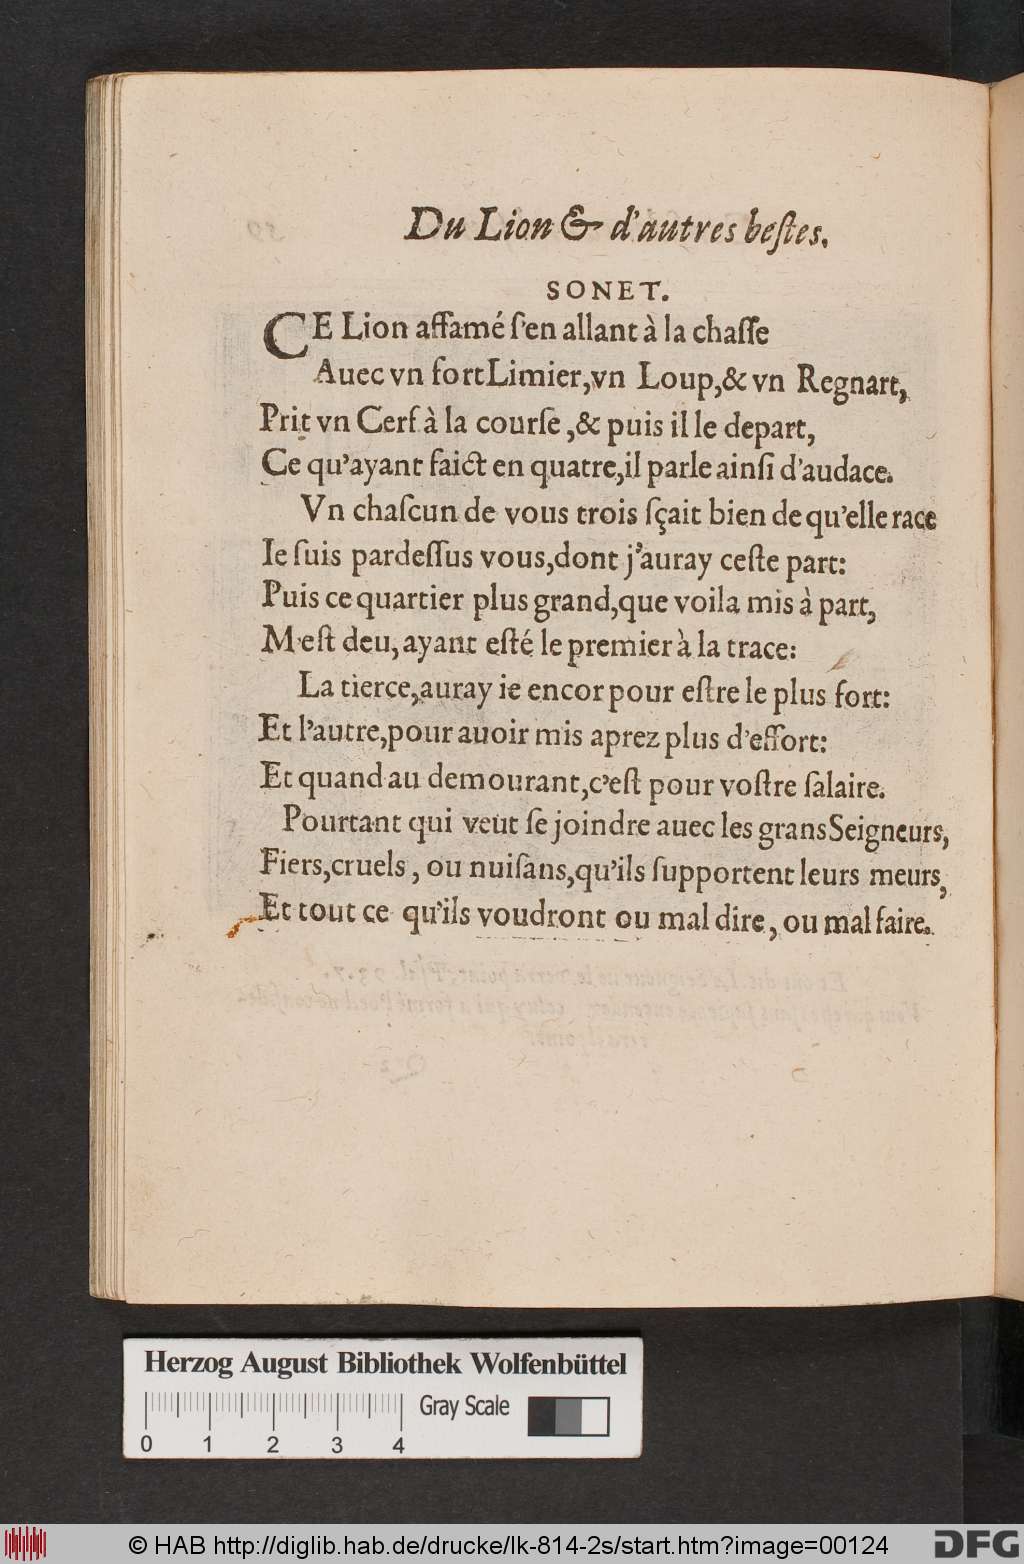 Du Lion & d'autres beſtes.
SONET.
CE Lion affamé ſ'en allant à la chaſſe
Auec vn fort Limier, vn Loup, & vn Regnart,
Prit vn Cerf à la courſe, & puis il le depart,
Ce qu'ayant faict en quatre, il parle ainſi d'audace.
Vn chaſcun de vous trois ſçait bien de qu'elle race
Ie ſuis pardeſſus vous, dont j'auray ceſte part:
Puis ce quartier plus grand, que voila mis à part,
M'eſt deu, ayant eſté le premier à la trace:
La tierce, auray ie encor pour eſtre le plus fort:
Et l'autre, pour auoir mis aprez plus d'effort:
Et quand au demourant, c'eſt pour voſtre ſalaire.
Pourtant qui veut ſe joindre auec les grans Seigneurs,
Fiers, cruels, ou nuiſans, qu'ils ſupportent leurs meurs,
Et tout ce qu'ils voudront ou mal dire, ou mal faire.
Herzog August Bibliothek Wolfenbüttel
Gray Scale
0 1 2 3 4
© HAB http://diglib.hab.de/drucke/lk-814-2s/start.htm?image=00124
DFG